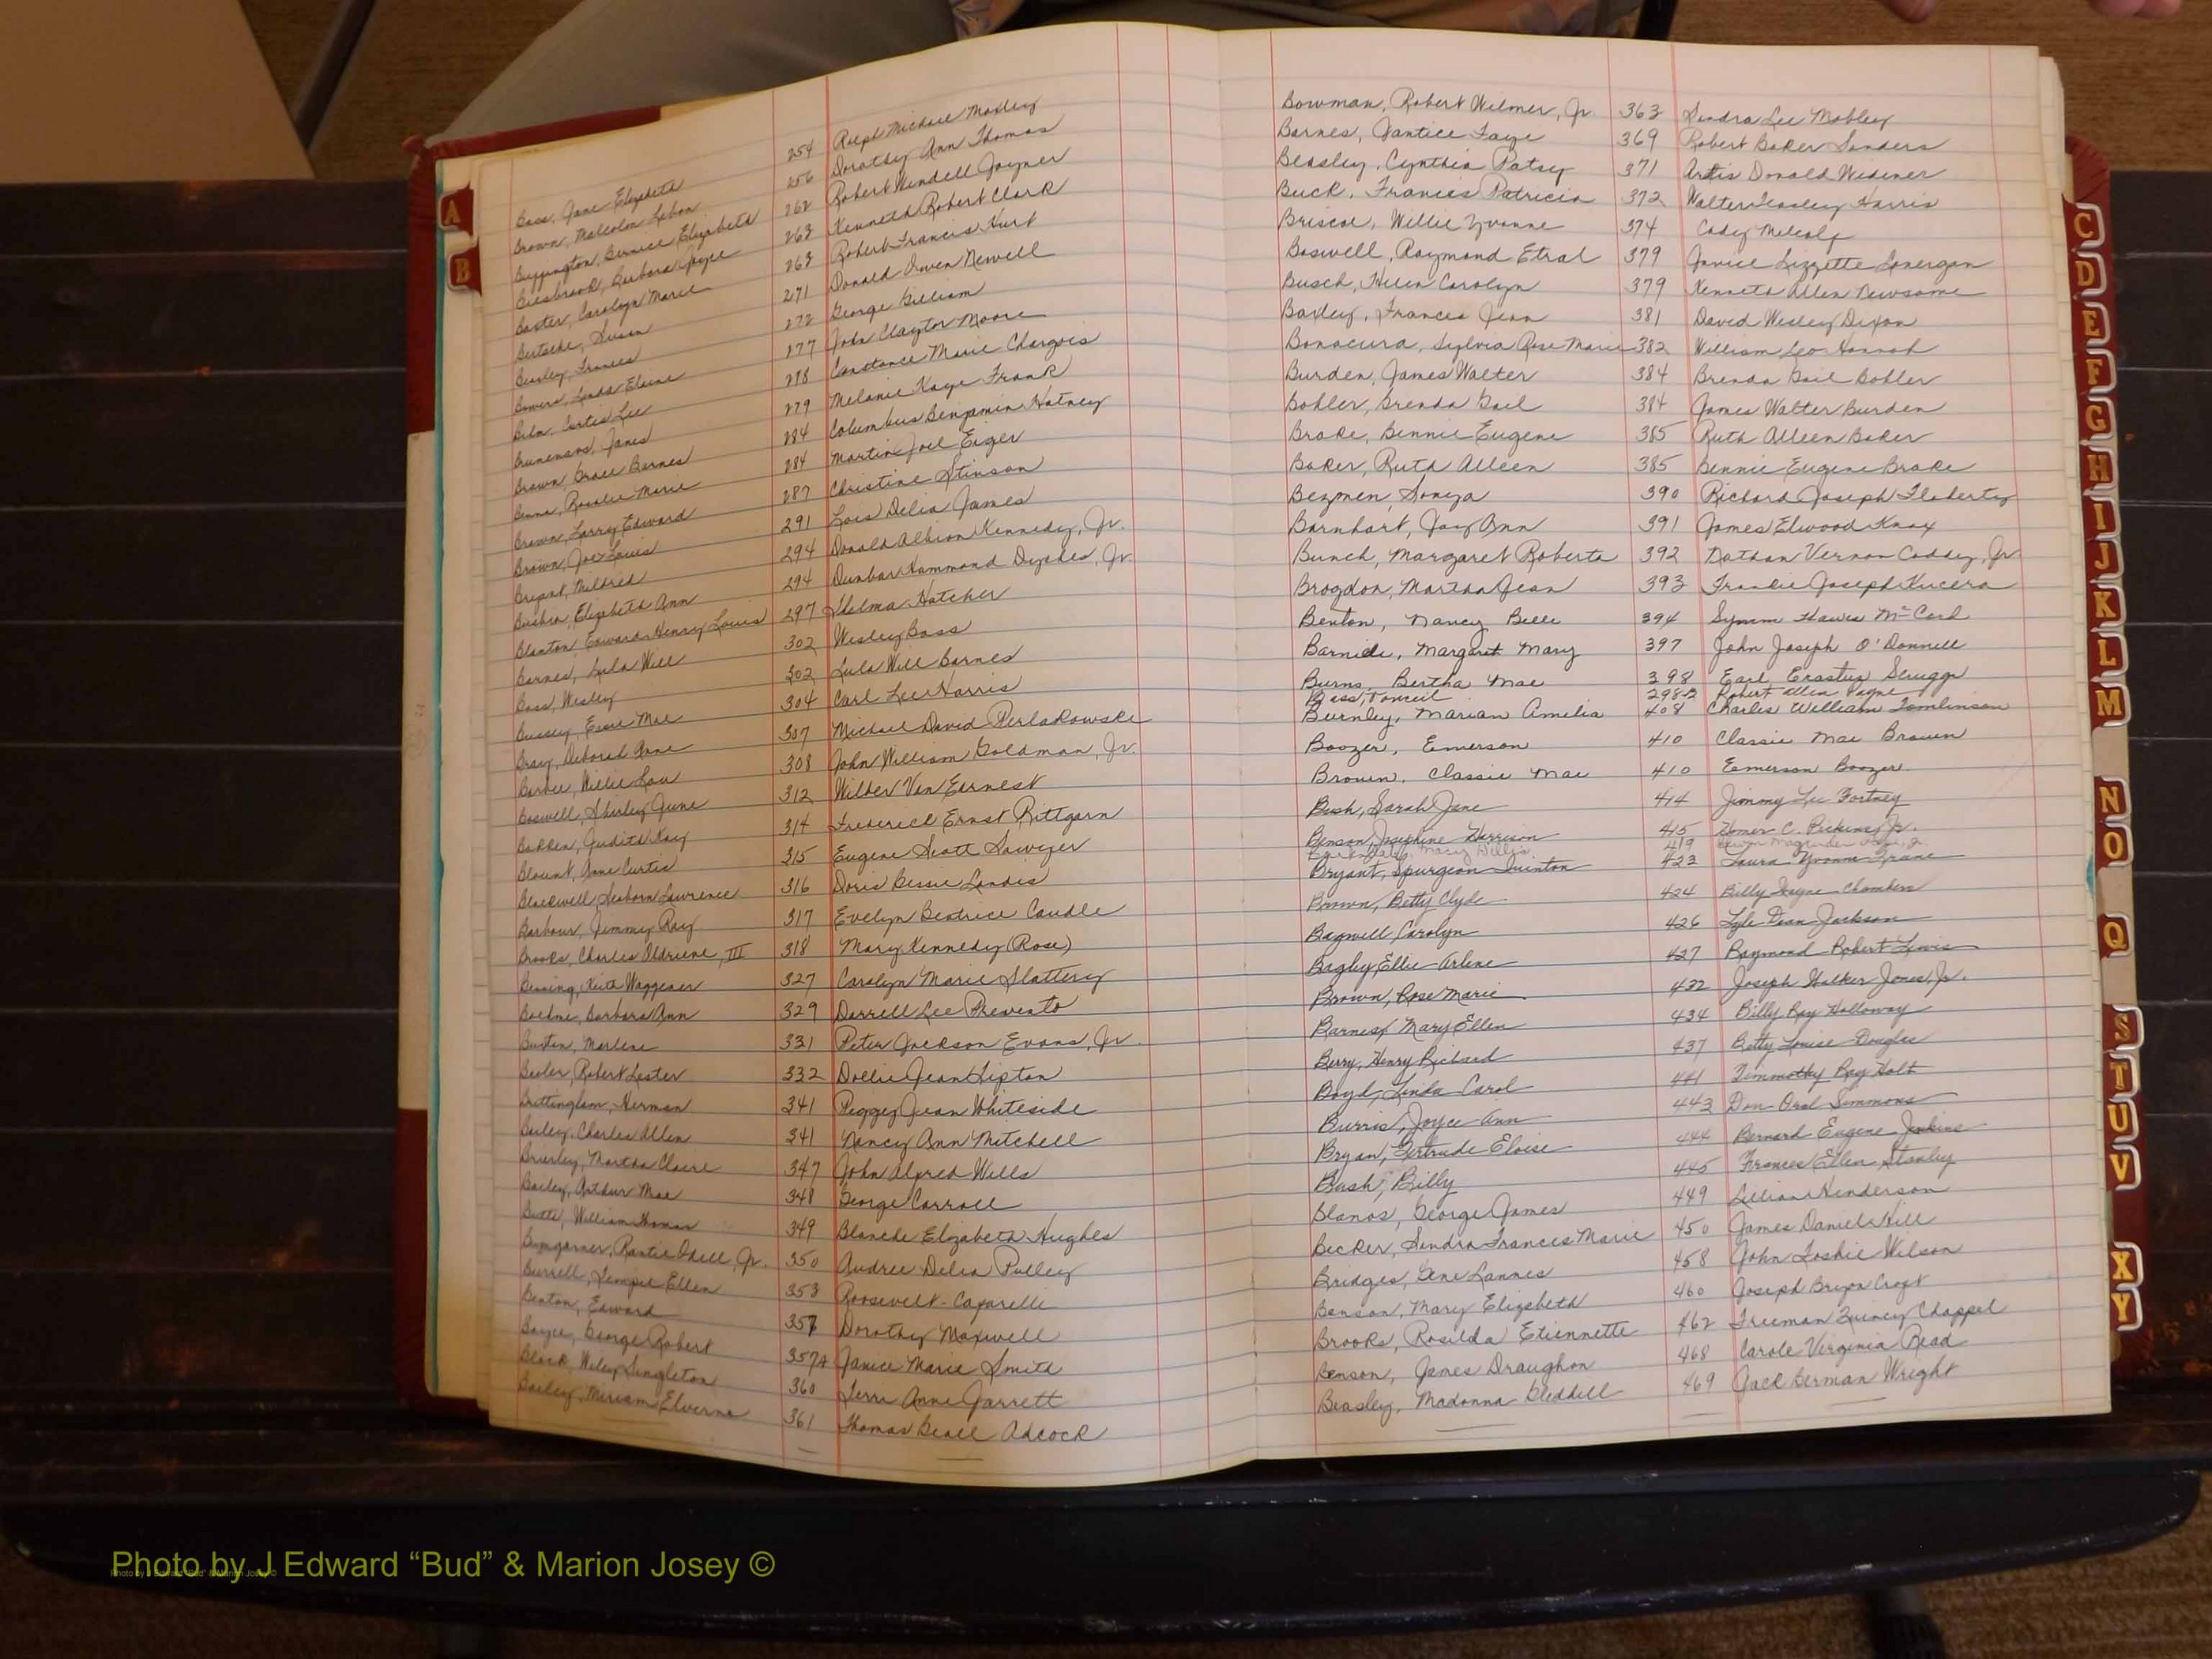 Bass, Jane Elizabeth 254 Ralph Michael Moxley
Brown, Malcolm Lebon 256 Dorothy Ann Thomas
Buffington, Bernice Elizabeth 262 Robert Wendell Joyner
Biesbrock, Barbara Joyce 263 Kenneth Robert Clark
Baxter, Carolyn Marie 263 Robert Francis Hurt
Susan 271 Donald Owen Newell
Beasley, Frances 272 George Gilliam
Bowers, Linda Elaine 277 John Clayton Moore
Curtis Lee 278 Constance Marie Chargois
Janes 279 Melanie Kaye Frank
Brown, Grace Barnes 284 Columbus Benjamin Hatney
Rosalie Marie 284 Martin Joel Eiger
Brown, Larry Edward 287 Christine Stinson
Brown, Joe Louis 291 Lois Delia James
Bryant, Mildred 294 Donald Albion Kennedy, Jr.
Elizabeth Ann 294 Dunbar Hammond Dyches, Jr.
Blanton, Edward Henry Louis 297 Thelma Hatcher
Barnes, Lula Will 302 Wesley Bass
Bass, Wesley 302 Lula Will Barnes
Bussey, Essie Mae 304 Carl Lee Harris
Bray, Deborah Anne 307 Michael David Perlakowski
Barbee, Willie Lou 308 John William Goldman, Jr.
Boswell, Shirley June 312 Wilder Van Earnest
Judith Kay 314 Frederick Ernst Rittgarn
Blount, Anne Curtis 315 Eugene Scott Sawyer
Blackwell, Seaborn Lawrence 316 Doris Bessie Landis
Barbour, Jimmy Ray 317 Evelyn Beatrice Caudle
Brooks, Charles Aldriene, III 318 Mary Kennedy (Rose)
Keith Waggener 327 Carolyn Marie Slattery
Boehme, Barbara Ann 329 Darrell Lee Prevosto
Burton, Marlene 331 Peter Jackson Evans, Jr.
Robert Lester 332 Dollie Jean Lipton
Brittingham, Herman 341 Peggy Jean Whiteside
Bailey, Charles Allen 341 Nancy Ann Mitchell
Brierley, Martha Claire 347 John Alfred Wells
Bailey, Arthur Mae 348 George Carroll
Butts, William Thomas 349 Blanche Elizabeth Hughes
Bumgarner, Rantie Odell, Jr. 350 Audree Delia Pulley
Burrell, Tempie Ellen 353 Roosevelt Caparelli
Benton, Edward 357 Dorothy Maxwell
Boyce, George Robert 357A Janice Marie Smith
Black, Wiley Singleton 360 Terri Anne Garrett
Bailey, Miriam Elverna 361 Thomas Beall Adcock
Bowman, Robert Wilmer, Jr. 363 Sandra Lee Mobley
Barnes, Jantice Faye 369 Robert Baker Sanders
Beasley, Cynthia Patsy 371 Artis Donald Widener
Buck, Frances Patricia 372 Walter Teasley Harris
Briscoe, Willie Yvonne 374 Cady Metcalf
Boswell, Raymond Etral 379 Janice Lizzette Lonergan
Busch, Helen Carolyn 379 Kenneth Allen Newsome
Baxley, Frances Jean 381 David Wesley Dixon
Bonacura, Sylvia Rose Marie 382 William Leo Hannah
Burden, James Walter 384 Brenda Gail Bohler
Bohler, Brenda Gail 384 James Walter Burden
Brake, Bennie Eugene 385 Ruth Alleen Baker
Baker, Ruth Alleen 385 Bennie Eugene Brake
Bezmen, Sonya 390 Richard Joseph Flaherty
Barnhart, Joy Ann 391 James Elwood Knox
Bunch, Margaret Roberta 392 Nathan Vernon Coddey, Jr.
Brogdon, Martha Jean 393 Frankie Joseph Kucera
Benton, Nancy Belle 394 Symm Hawes McCord
Barnidi, Margaret Mary 397 John Joseph O'Donnell
Burns, Bertha Mae 398 Earl Erastus Scruggs
Bass, 298-B Robert Allen Payne
Burnley, Marian Amelia 408 Charles William Tomlinson
Boozer, Emerson 410 Classie Mae Brown
Brown, Classie Mae 410 Emerson Boozer
Bush, Sarah Jane 414 Jimmy Lee Fortney
Benson, Josephine Harrison 415 Homer C. Pickens, Jr.
Mary Gillis 419
Bryant, Spurgeon Quinton 423 Laura Yvonne Frane
Brown, Betty Clyde 424 Billy Wayne Chambers
Bagwell, Carolyn 426 Lyle Dean Jackson
Bagley, Ellie Arlene 427 Raymond Robert Lewis
Brown, Rose Marie 432 Joseph Walker Jones, Jr.
Barnes, Mary Ellen 434 Billy Ray Holloway
Berry, Henry Richard 437 Betty Louise Douglas
Boyd, Linda Carol 441 Timmothy Ray Holt
Burris, Joyce Ann 443 Don Oral Simmons
Bryan, Gertrude Eloise 444 Bernard Eugene Jenkins
Bush, Billy 445 Frances Ellen Stanley
Blanos, George James 449 Lillian Henderson
Becker, Sandra Frances Marie 450 James Daniel Hill
Bridges, Gene Lannes 458 John Loskie Wilson
Benson, Mary Elizabeth 460 Joseph Bryon Croft
Brooks, Rosilda Etiennette 462 Freeman Quincy Chappel
Benson, James Draughon 468 Carole Virginia Read
Beasley, Madonna Gleddell 469 Jack Berman Wright
A
B
C
D
E
F
G
H
I
J
K
L
M
N
O
Q
S
T
U
V
X
Y
Photo by J Edward “Bud” & Marion Josey ©
Photo by J Edward “Bud” & Marion Josey ©